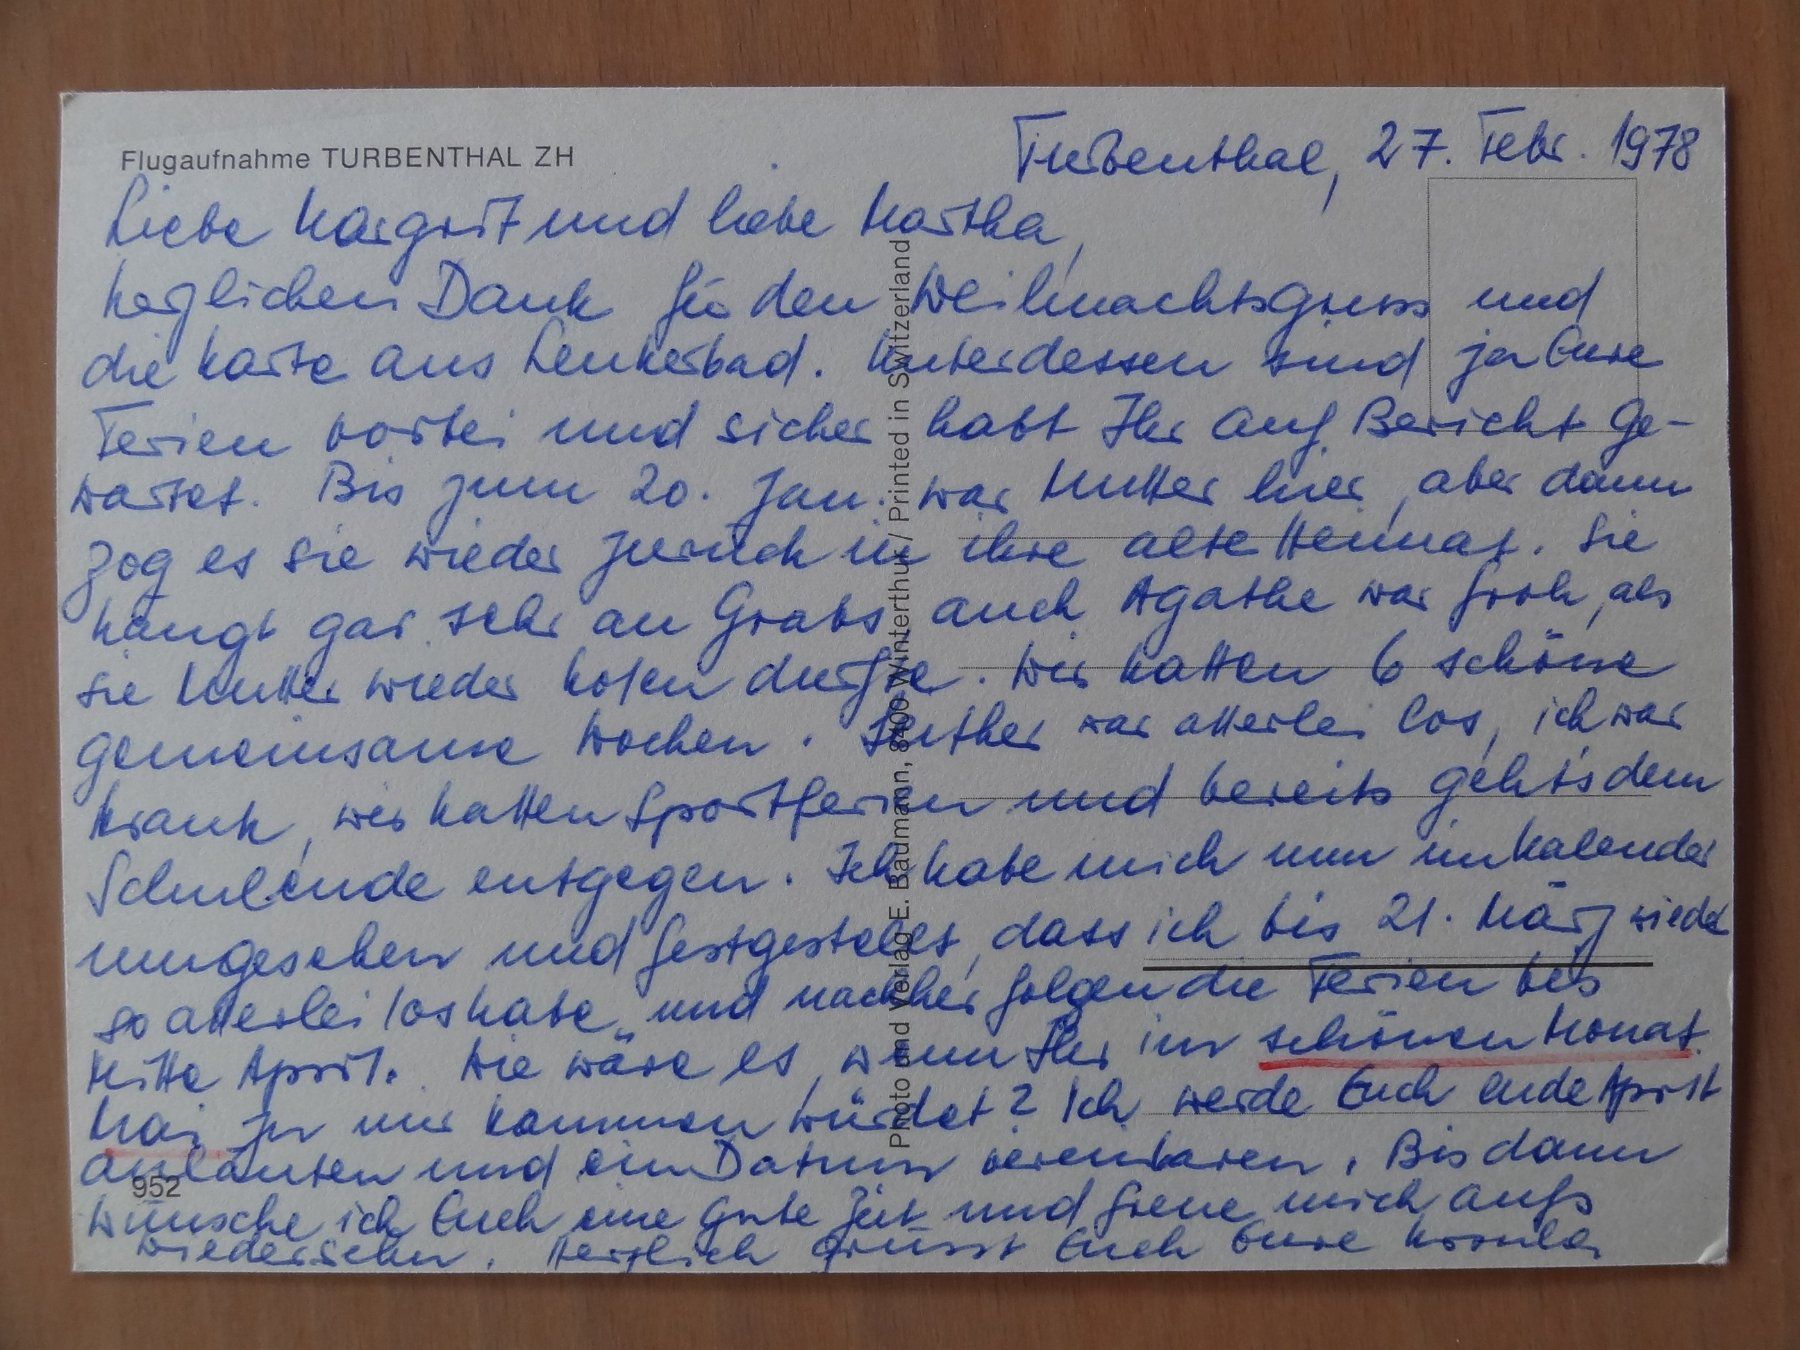 Flugaufnahme TURBENTHAL ZH
Turbenthal, 27. Febr. 1978
Liebe Margrit und liebe Martha,
herzlichen Dank für den Weihnachtsgruss und
die Karte aus Leukerbad. Unterdessen sind ja Eure
Ferien vorbei und sicher habt Ihr auf Bericht ge-
wartet. Bis zum 20. Jan. war Mutter hier, aber dann
zog es sie wieder zurück in ihre alte Heimat. Sie
hängt gar sehr an Grabs, auch Agathe war froh, als
sie Mutter wieder holen durfte. Wir hatten 6 schöne
gemeinsame Wochen. Seither war allerlei los, ich war
krank, wir hatten Sportferien und bereits geht's dem
Schulende entgegen. Ich habe mich nun im Kalender
umgesehen und festgestellt, dass ich bis 21. März wieder
so allerlei los habe, und nachher folgen die Ferien bis
Mitte April. Wie wäre es, wenn Ihr im schönen Monat
Mai zu mir kommen würdet? Ich werde Euch ende April
anläuten und ein Datum vereinbaren. Bis dann
wünsche ich Euch eine gute Zeit und freue mich aufs
Wiedersehn. Herzlich grüsst Euch Eure
Photo und Verlag E. Baumann, 8400 Winterthur / Printed in Switzerland
952